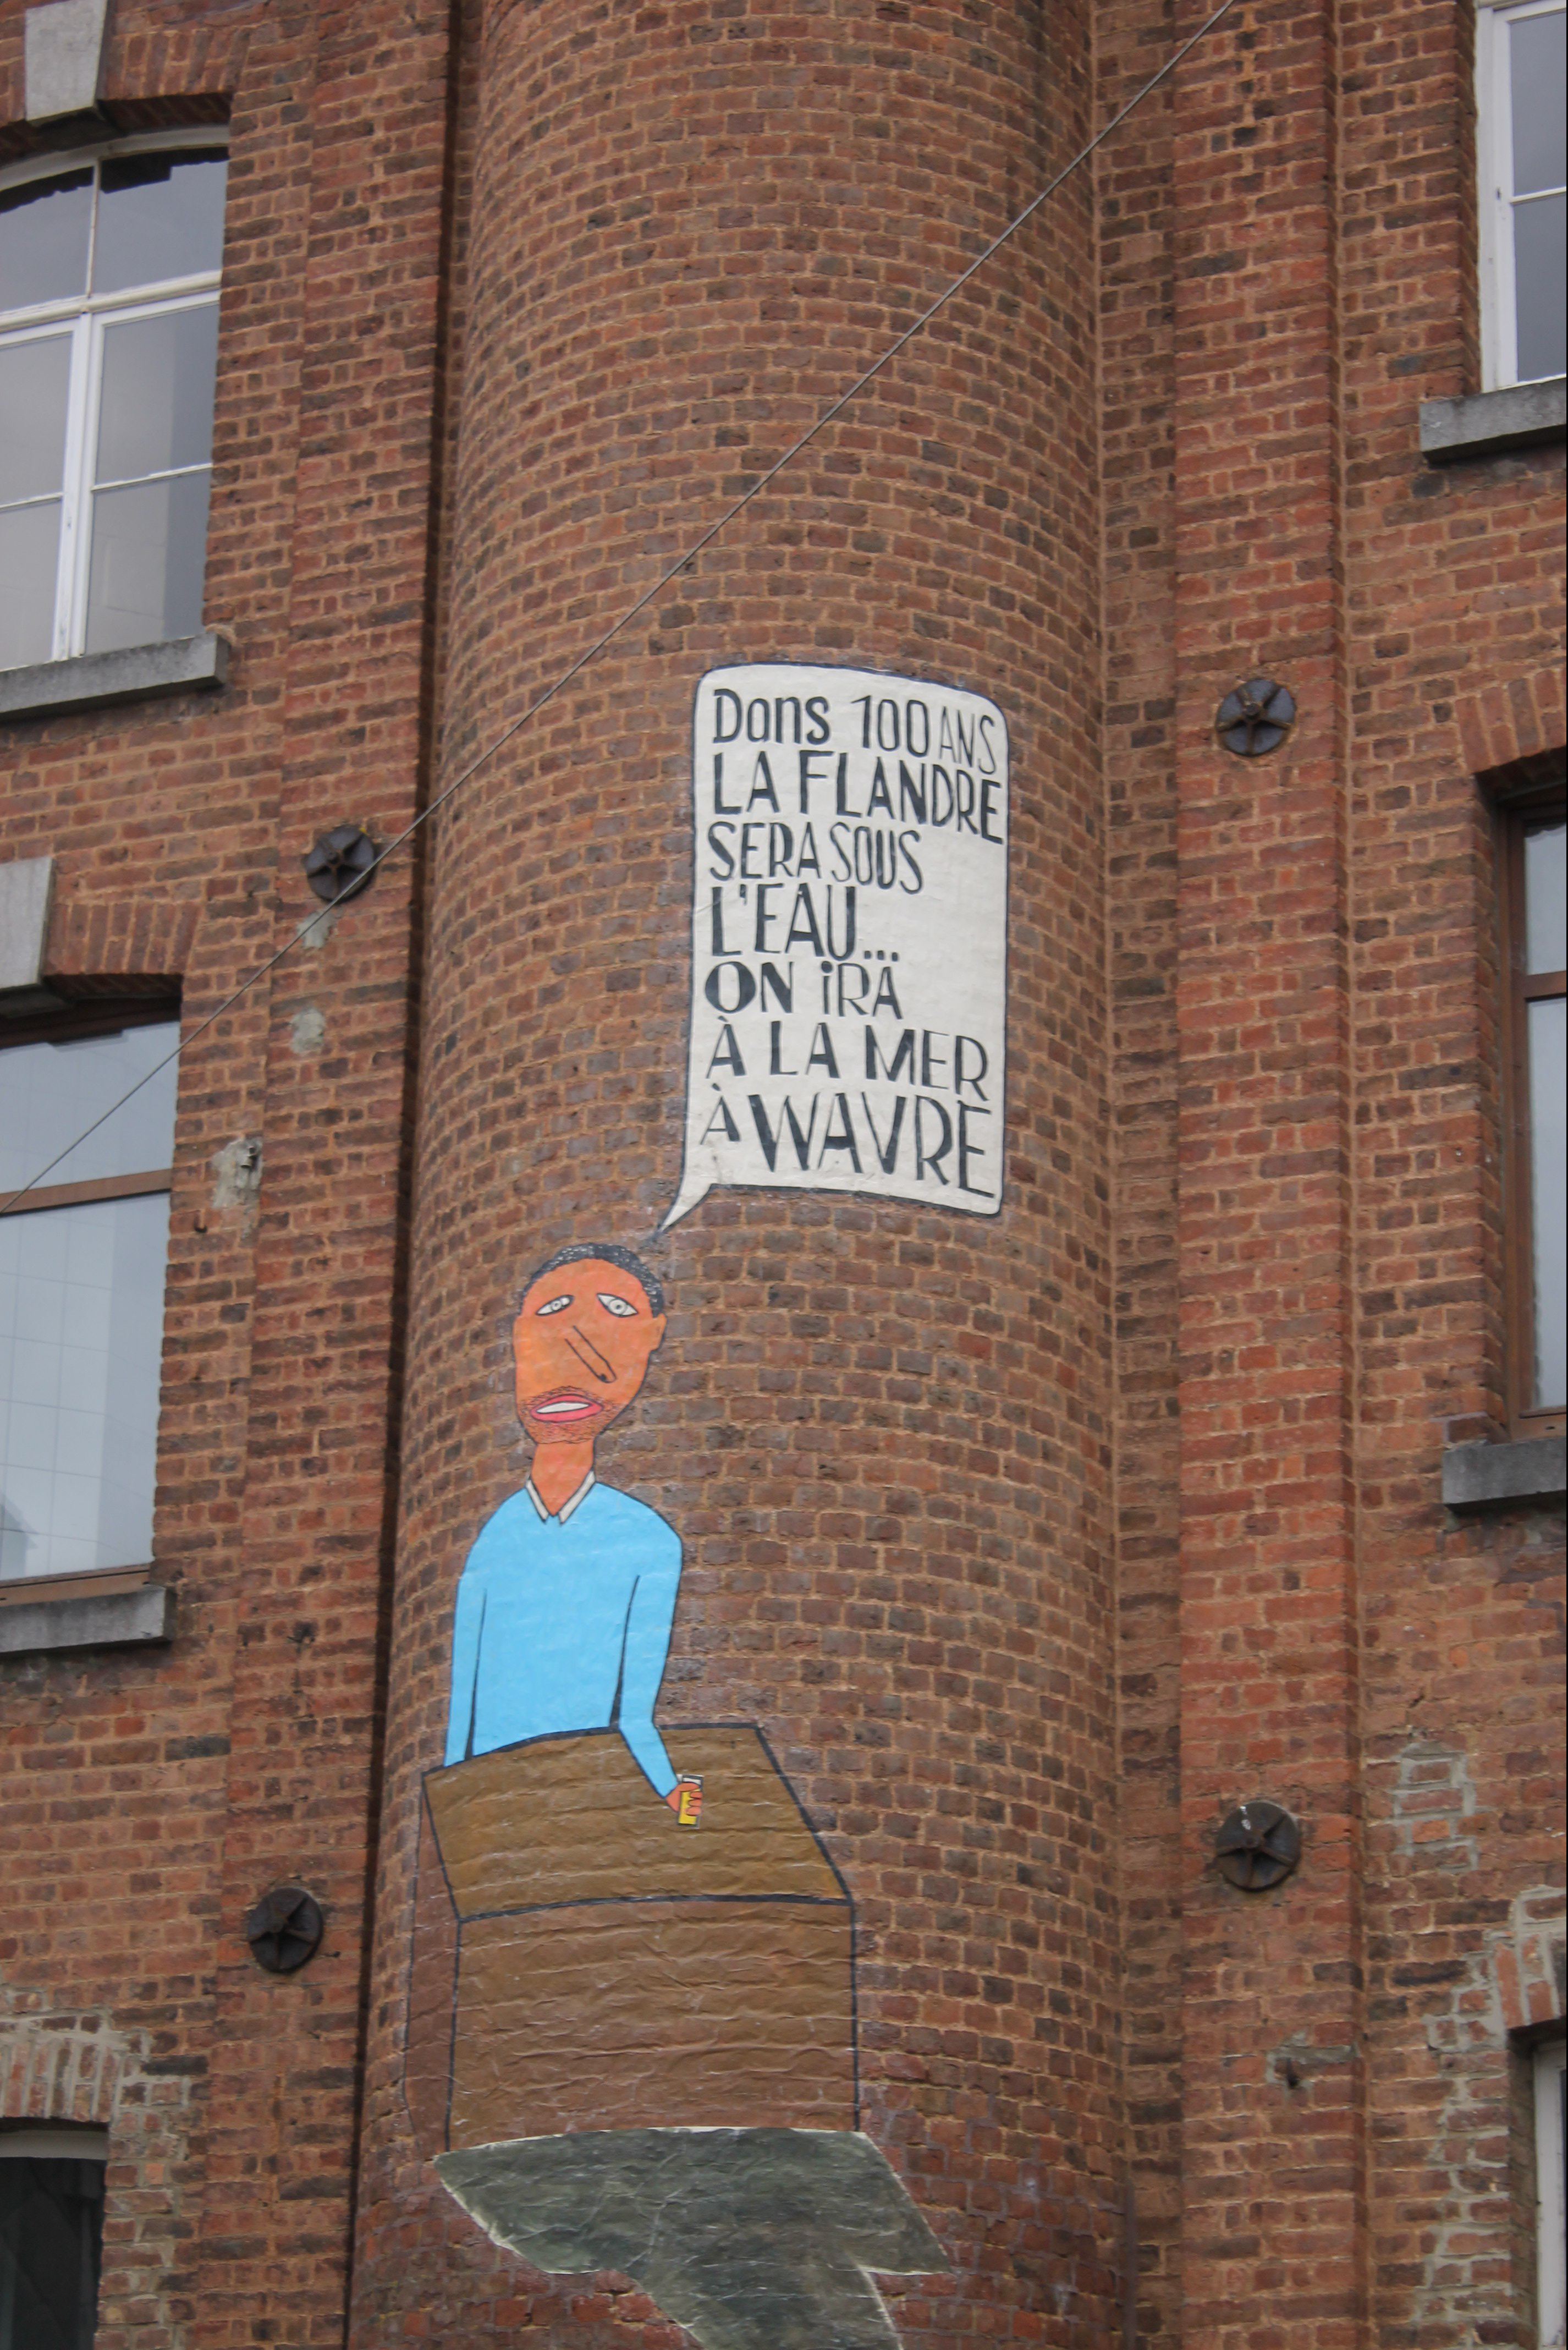 Dans 100 ANS
LA FLANDRE
SERA SOUS
L'EAU...
ON iRA
À LA MER
À WAVRE